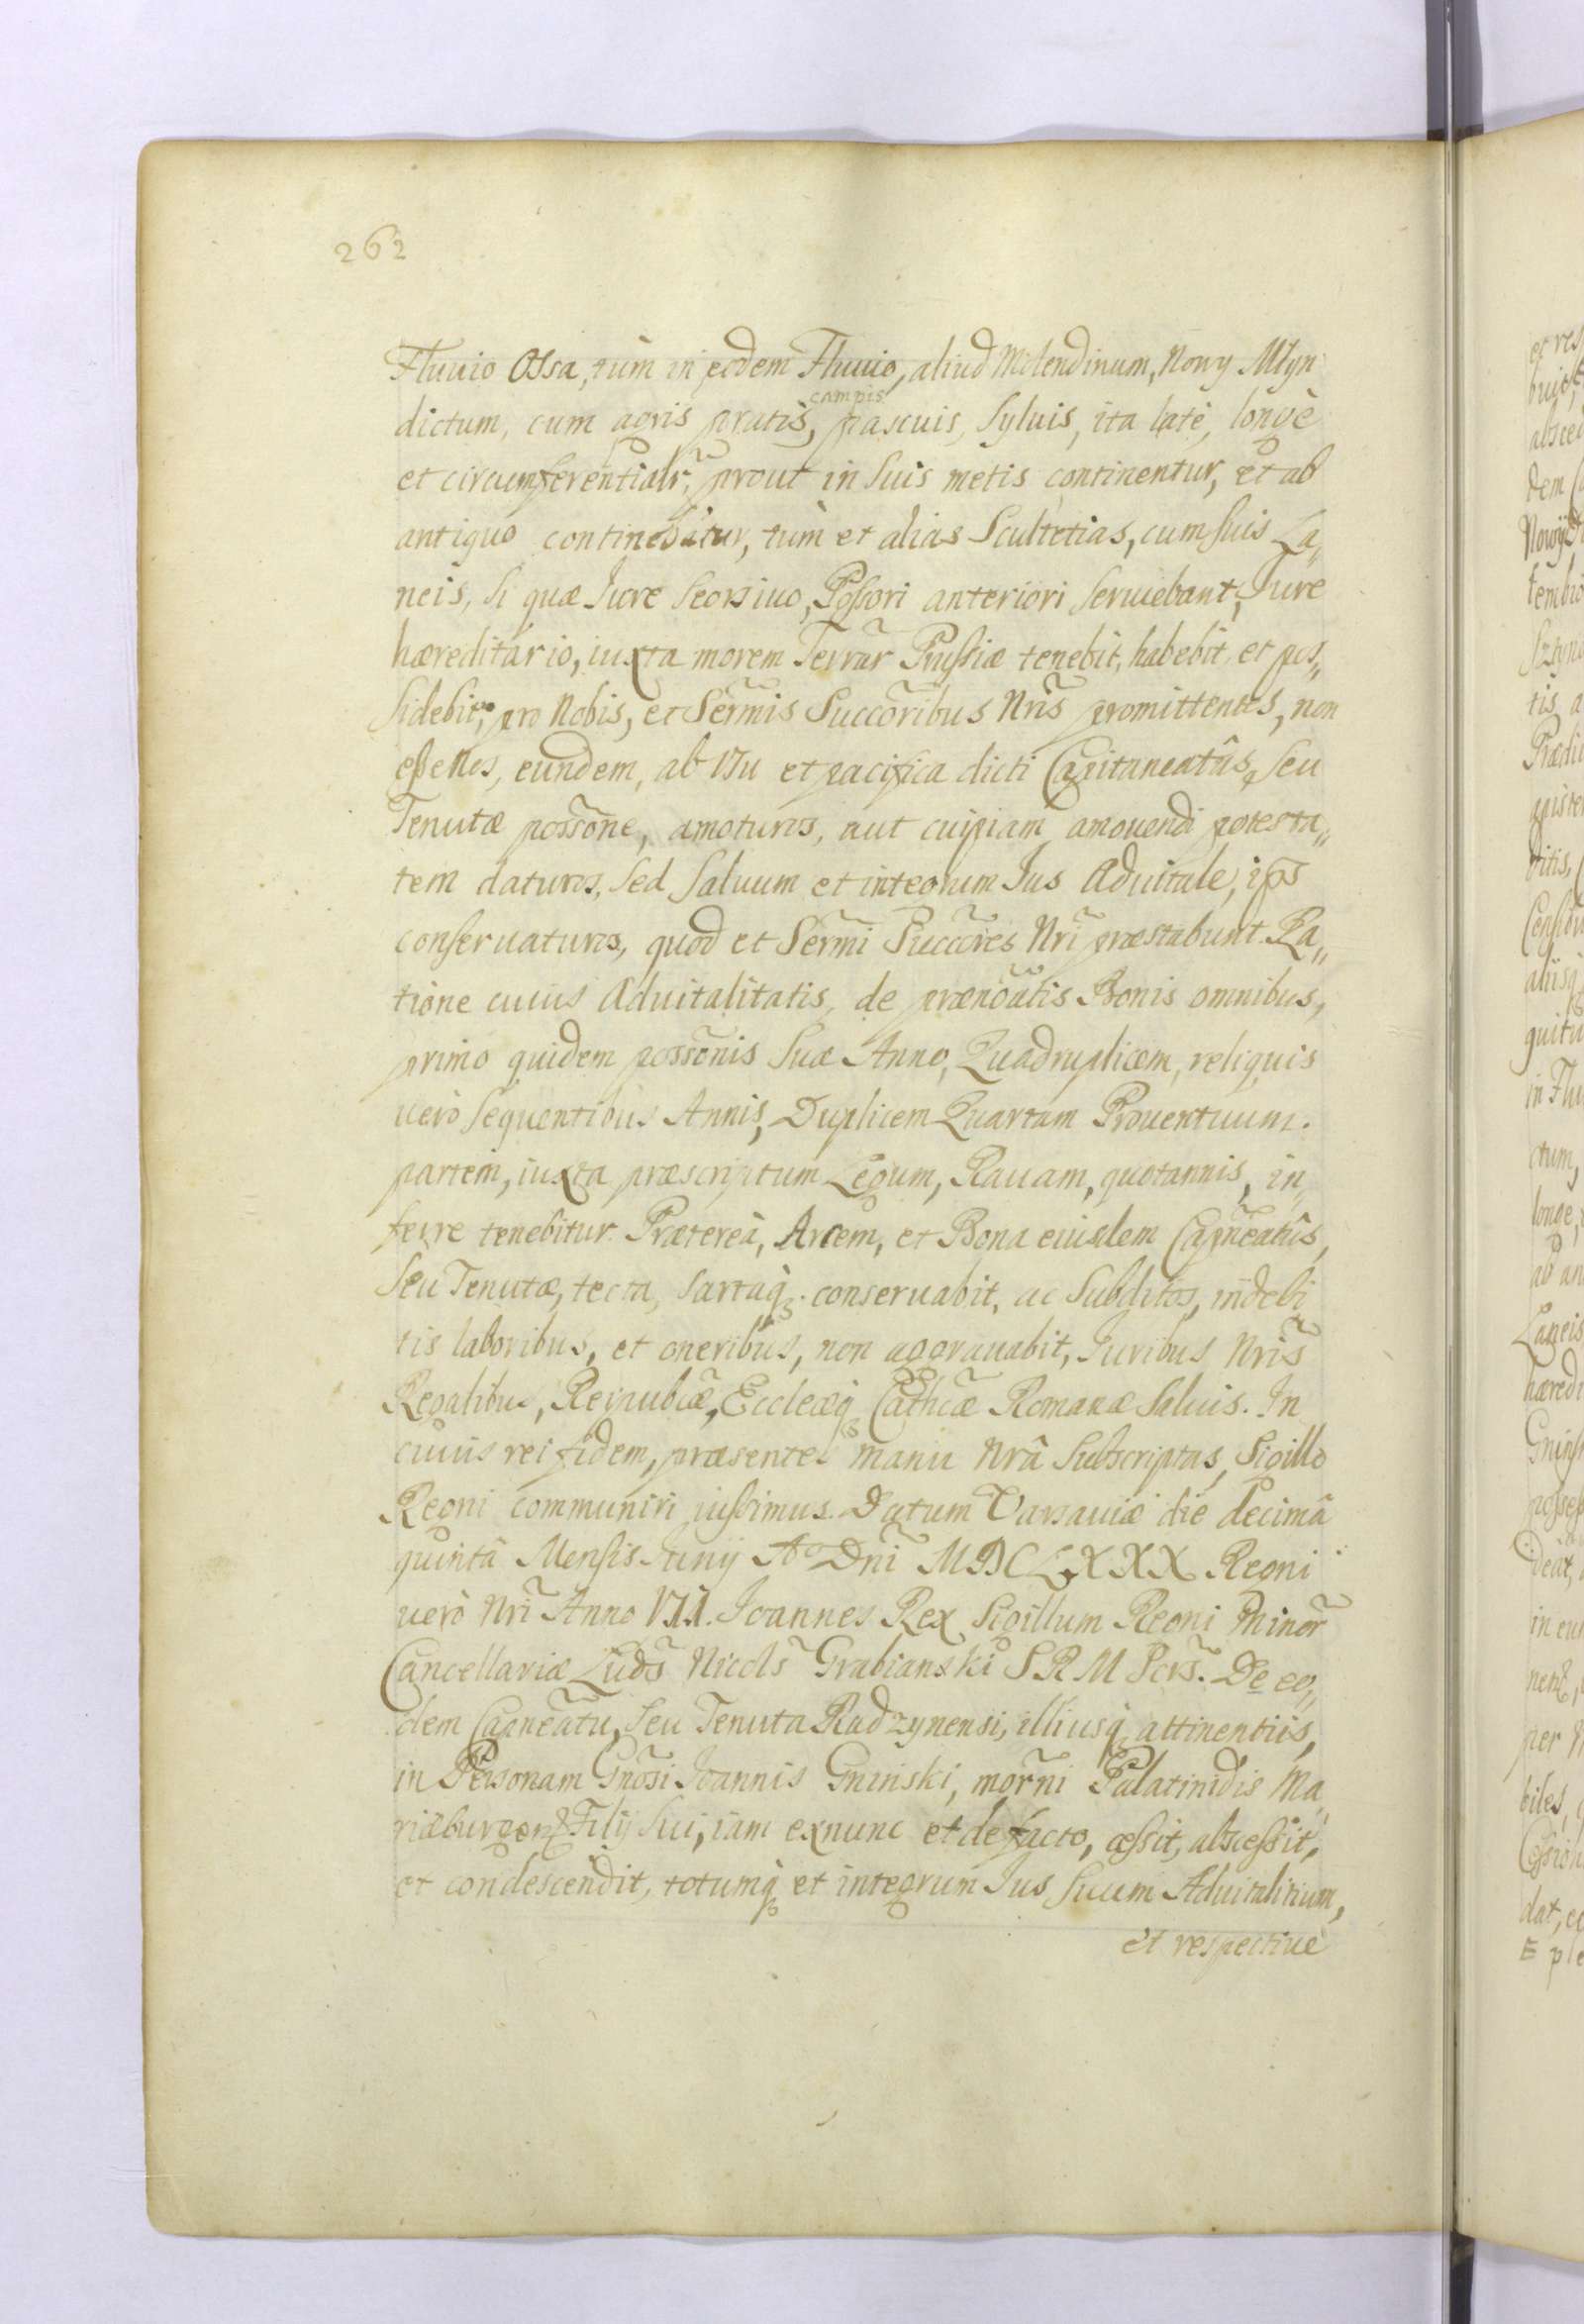 262
Fluuio Ossa, tùm in eodem Fluuio, aliud Molendinum, Nowy Młyn
campis
dictum, cum agris pratis, pascuis, syluis, ita latè, longè
et circumferentialr̃, prout in suis metis continentur, et ab
antiquo continebatur, tùm et alias Scultetias, cum suis La„
neis, si quæ Iure seorsiuo, Poßori anteriori seruiebant, Iure
hæreditario, iuxta morem Terrar̃ Prußiæ tenebit, habebit, et pos„
sidebit, pro Nobis, et Serm̃is Succor̃ibus Nr̃is promittentes, non
eße Nos, eundem, ab Vsu et pacifica dicti Capitaneatûs, seu
Tenutæ possõne, amoturos, aut cuipiam amouendi potesta„
tem daturos, sed saluum et integrum Ius Aduitale, ips̃
conseruaturos, quod et Serm̃i Succor̃es Nr̃i præstabunt. Ra„
tione cuius Aduitalitatis, de prænoãtis Bonis omnibus,
primo quidem possõnis suæ Anno, Quadruplicem, reliquis
uerò sequentibus Annis, Duplicem Quartam Prouentuum
partem, iuxta præscriptum Legum, Rauam, quotannis, in„
ferre tenebitur. Prætereà, Arcem, et Bona eiusdem Capneãtûs,
seu Tenutæ, tecta, sartaq; conseruabit, ac Subditos, indebi
tis laboribus, et oneribus, non aggrauabit, Iuribus Nr̃is
Regalibus, Reipubcæ̃, Eccleæq; Cathcæ̃ Romanæ saluis. In
cuius rei fidem, præsentes manu Nrâ subscriptas, Sigillo
Regni communiri iußimus. Datum Varsauiæ die decimâ
quintâ Mensis Iunij Aº Dñi MDCLXXX Regni
uerò Nr̃i Anno VII. Ioannes Rex Sigillum Regni Minor̃
Cancellariæ Ludõ Nicols̃ Grabianski S R M Scrs̃. De eo„
dem Capneãtu, seu Tenuta Radzynensi, illiusq; attinentiis,
in Personam Gnõsi Ioannis Gninski, mor̃ni Palatinidis Ma„
riæburgen̄ Filij sui, iam exnunc et de facto, ceßit, absceßit,
et condescendit, totumq; et integrum Ius suum Aduitalitium,
et respectiuè